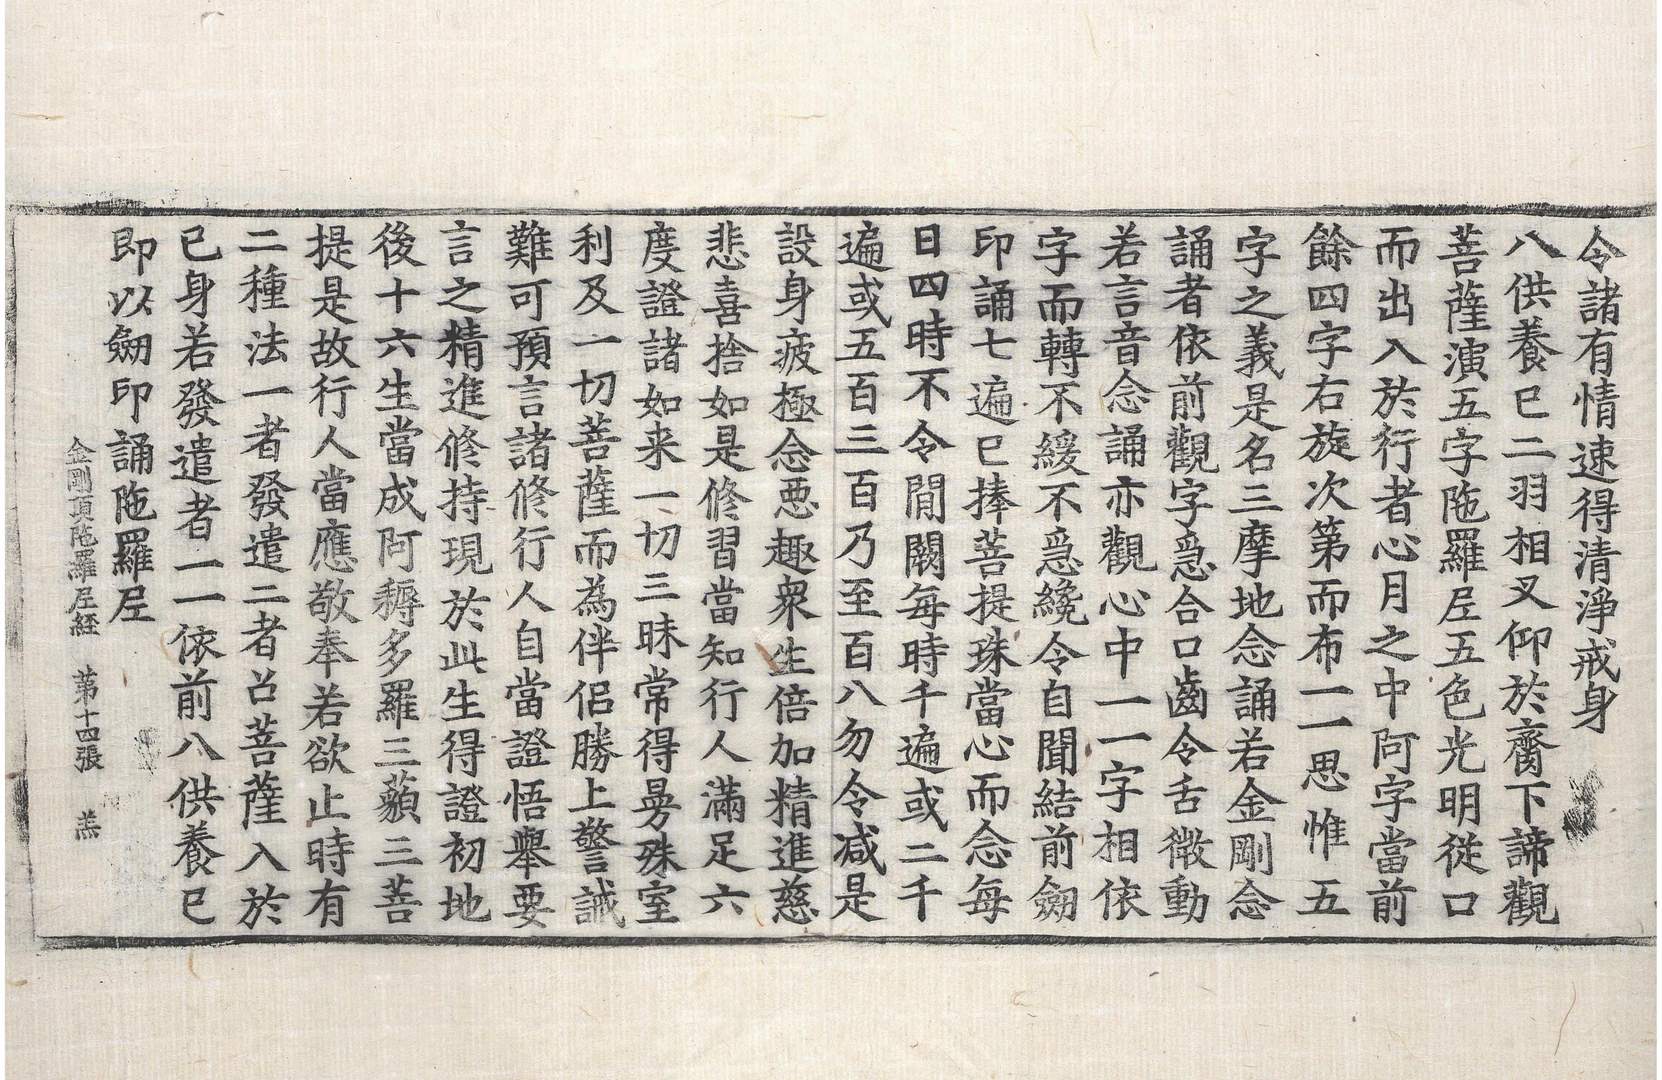 令諸有情速得清淨戒身
八供養已二羽相叉仰於臍下諦觀
菩薩演五字陁羅尼五色光明從口
而出入於行者心月之中阿字當前
餘四字右旋次第而布一一思惟五
字之義是名三摩地念誦若金剛念
誦者依前觀字急合口齒令舌微動
若言音念誦亦觀心中一一字相依
字而轉不緩不急纔令自聞結前劒
印誦七遍已捧菩提珠當心而念每
日四時不令閒闕每時千遍或二千
遍或五百三百乃至百八勿令减是
設身疲極念惡趣衆生倍加精進慈
悲喜捨如是修習當知行人滿足六
度證諸如来一切三昧常得曼殊室
利及一切菩薩而為伴侶勝上警誡
難可預言諸修行人自當證悟舉要
言之精進修持現於此生得證初地
後十六生當成阿耨多羅三藐三菩
提是故行人當應敬奉若欲止時有
二種法一者發遣二者召菩薩入於
已身若發遣者一一依前八供養已
即以劒印誦陁羅尼
金剛頂陁羅尼経 第十四張 羔